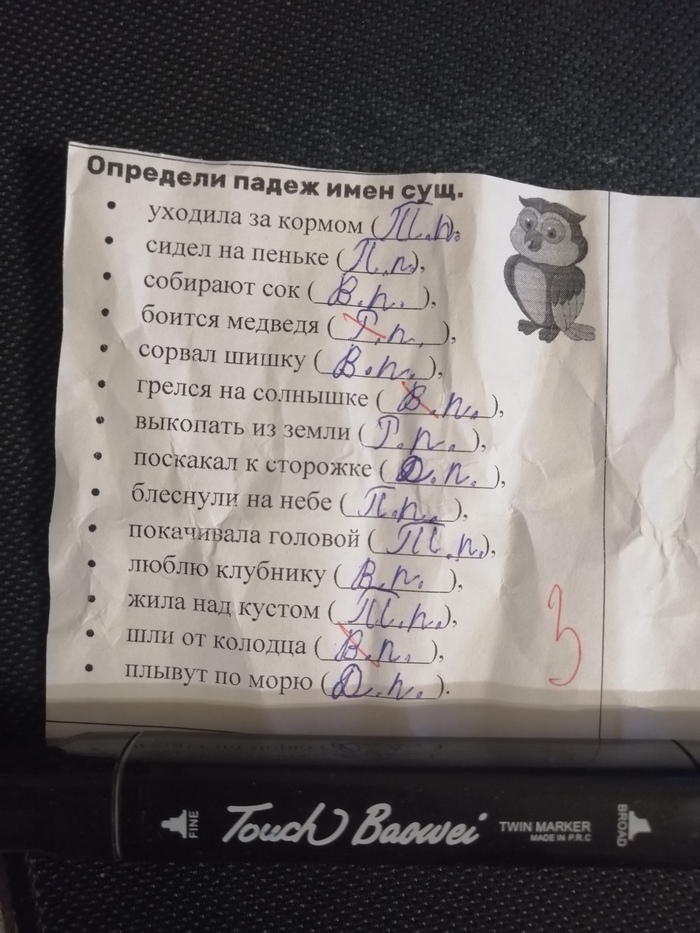 Определи падеж имен сущ.
• уходила за кормом (Т.п.),
• сидел на пеньке (П.п.),
• собирают сок (В.п.),
• боится медведя (Р.п.),
• сорвал шишку (В.п.),
• грелся на солнышке (В.п.),
• выкопать из земли (Р.п.),
• поскакал к сторожке (Д.п.),
• блеснули на небе (П.п.),
• покачивала головой (Т.п.),
• люблю клубнику (В.п.),
• жила над кустом (Т.п.),
• шли от колодца (В.п.),
• плывут по морю (Д.п.).
3
FINE Touch Baowei TWIN MARKER BROAD
MADE IN P.R.C